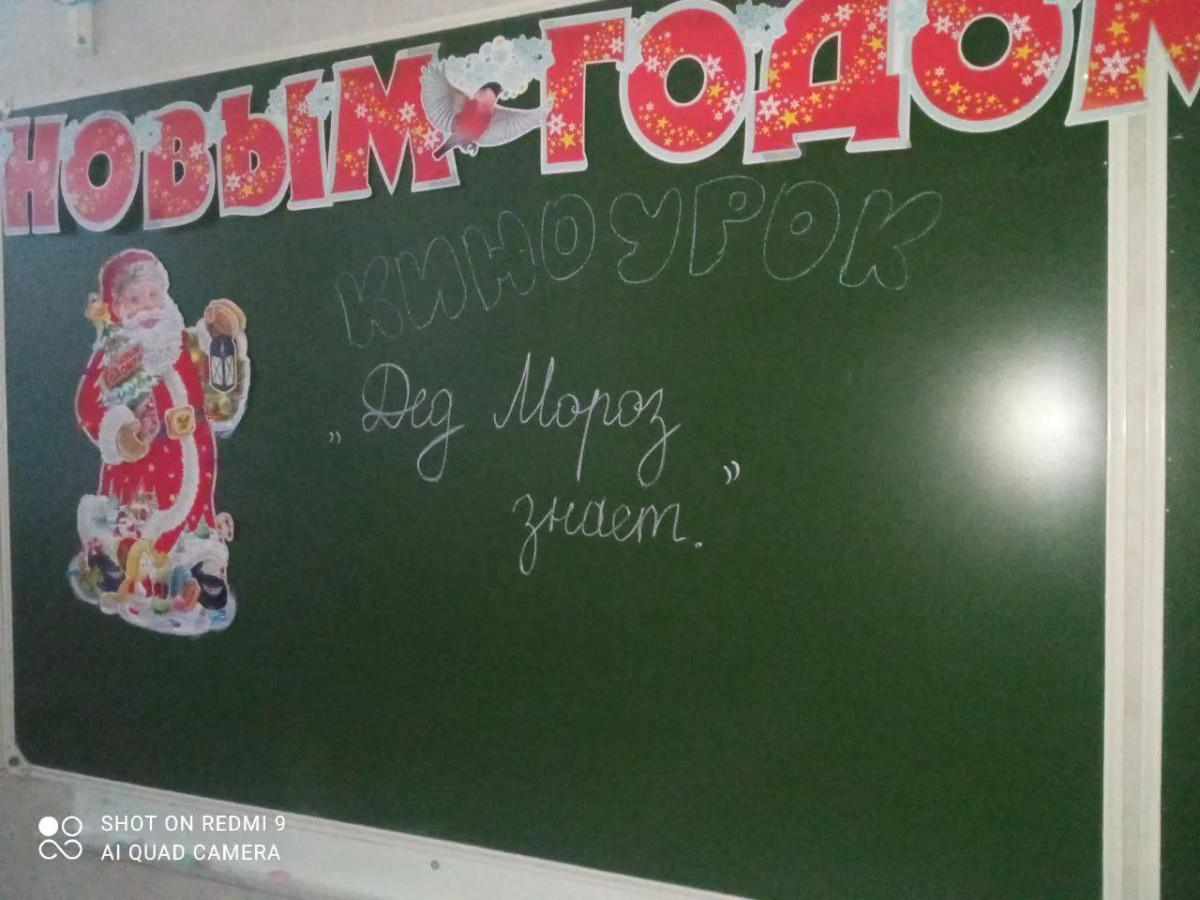 НОВЫМ ГОДОМ
КИНОУРОК
„Дед Мороз
знает."
SHOT ON REDMI 9
AI QUAD CAMERA